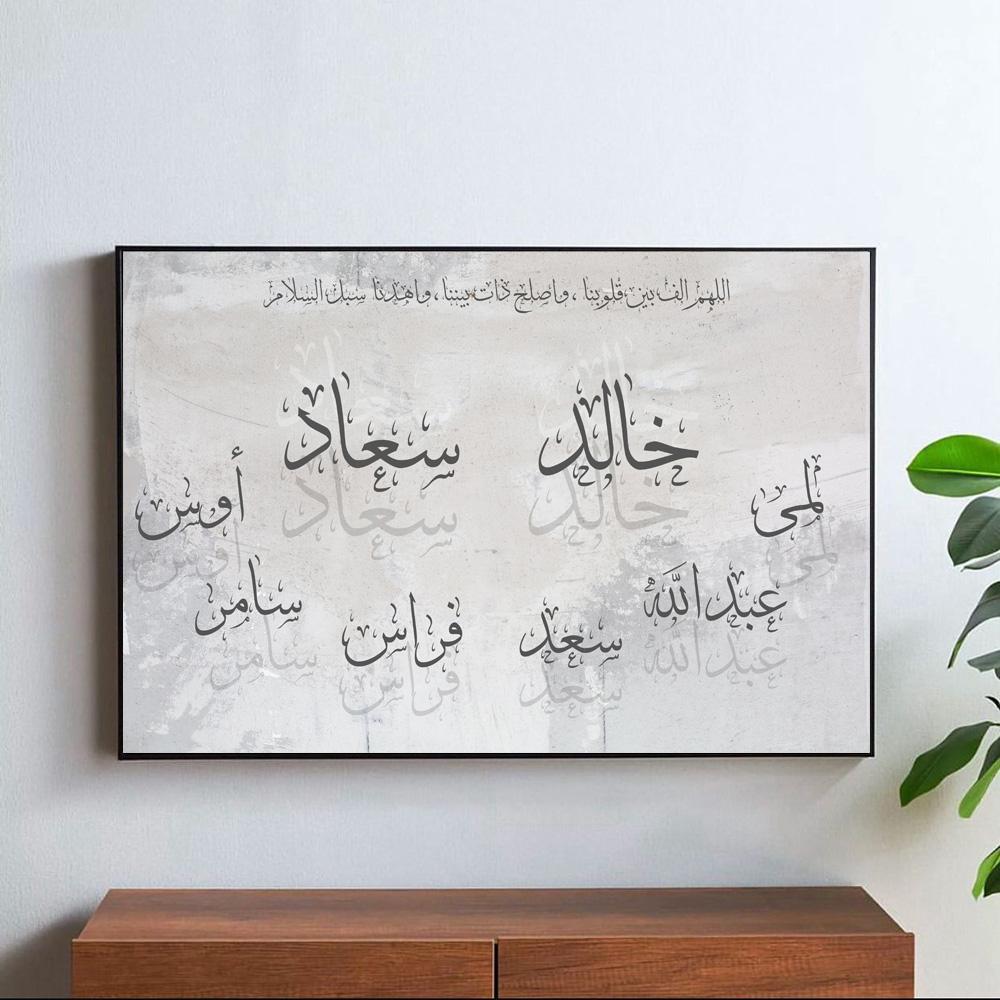 اللهم الف بين قلوبنا ، واصلح ذات بيننا ، واهدنا سبل السلام
خالد
سعاد
لمى
عبدالله
سعد
فراس
سامر
أوس